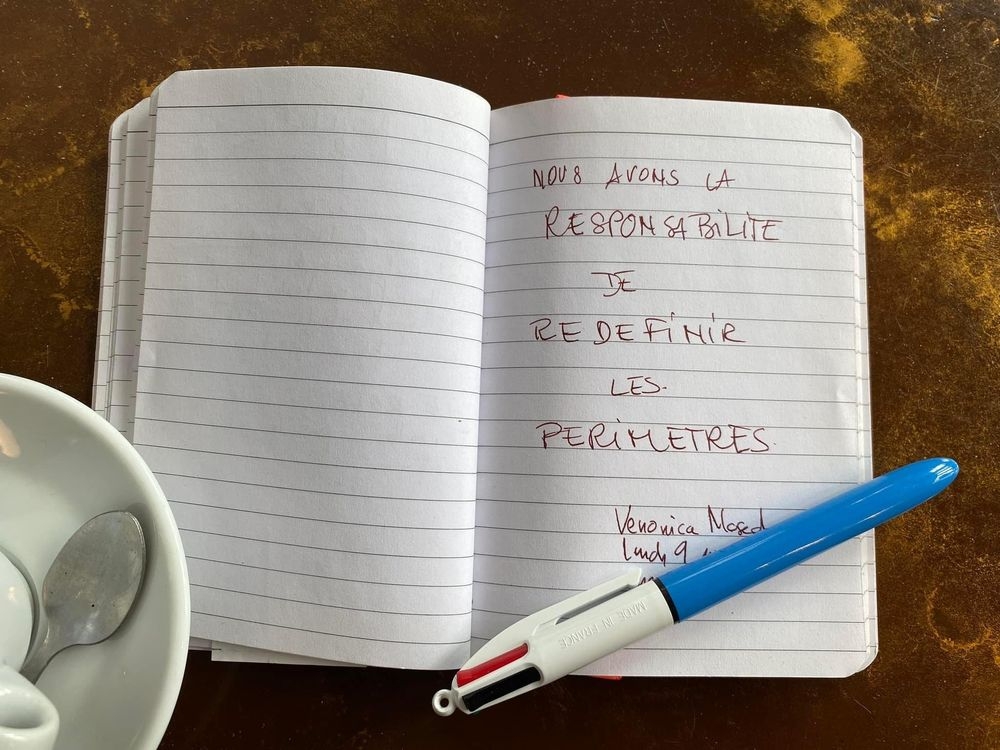 NOUS AVONS LA
RESPONSABILITE
DE
REDEFINIR
LES
PERIMETRES.
Veronica
lundi 9
MADE IN FRANCE